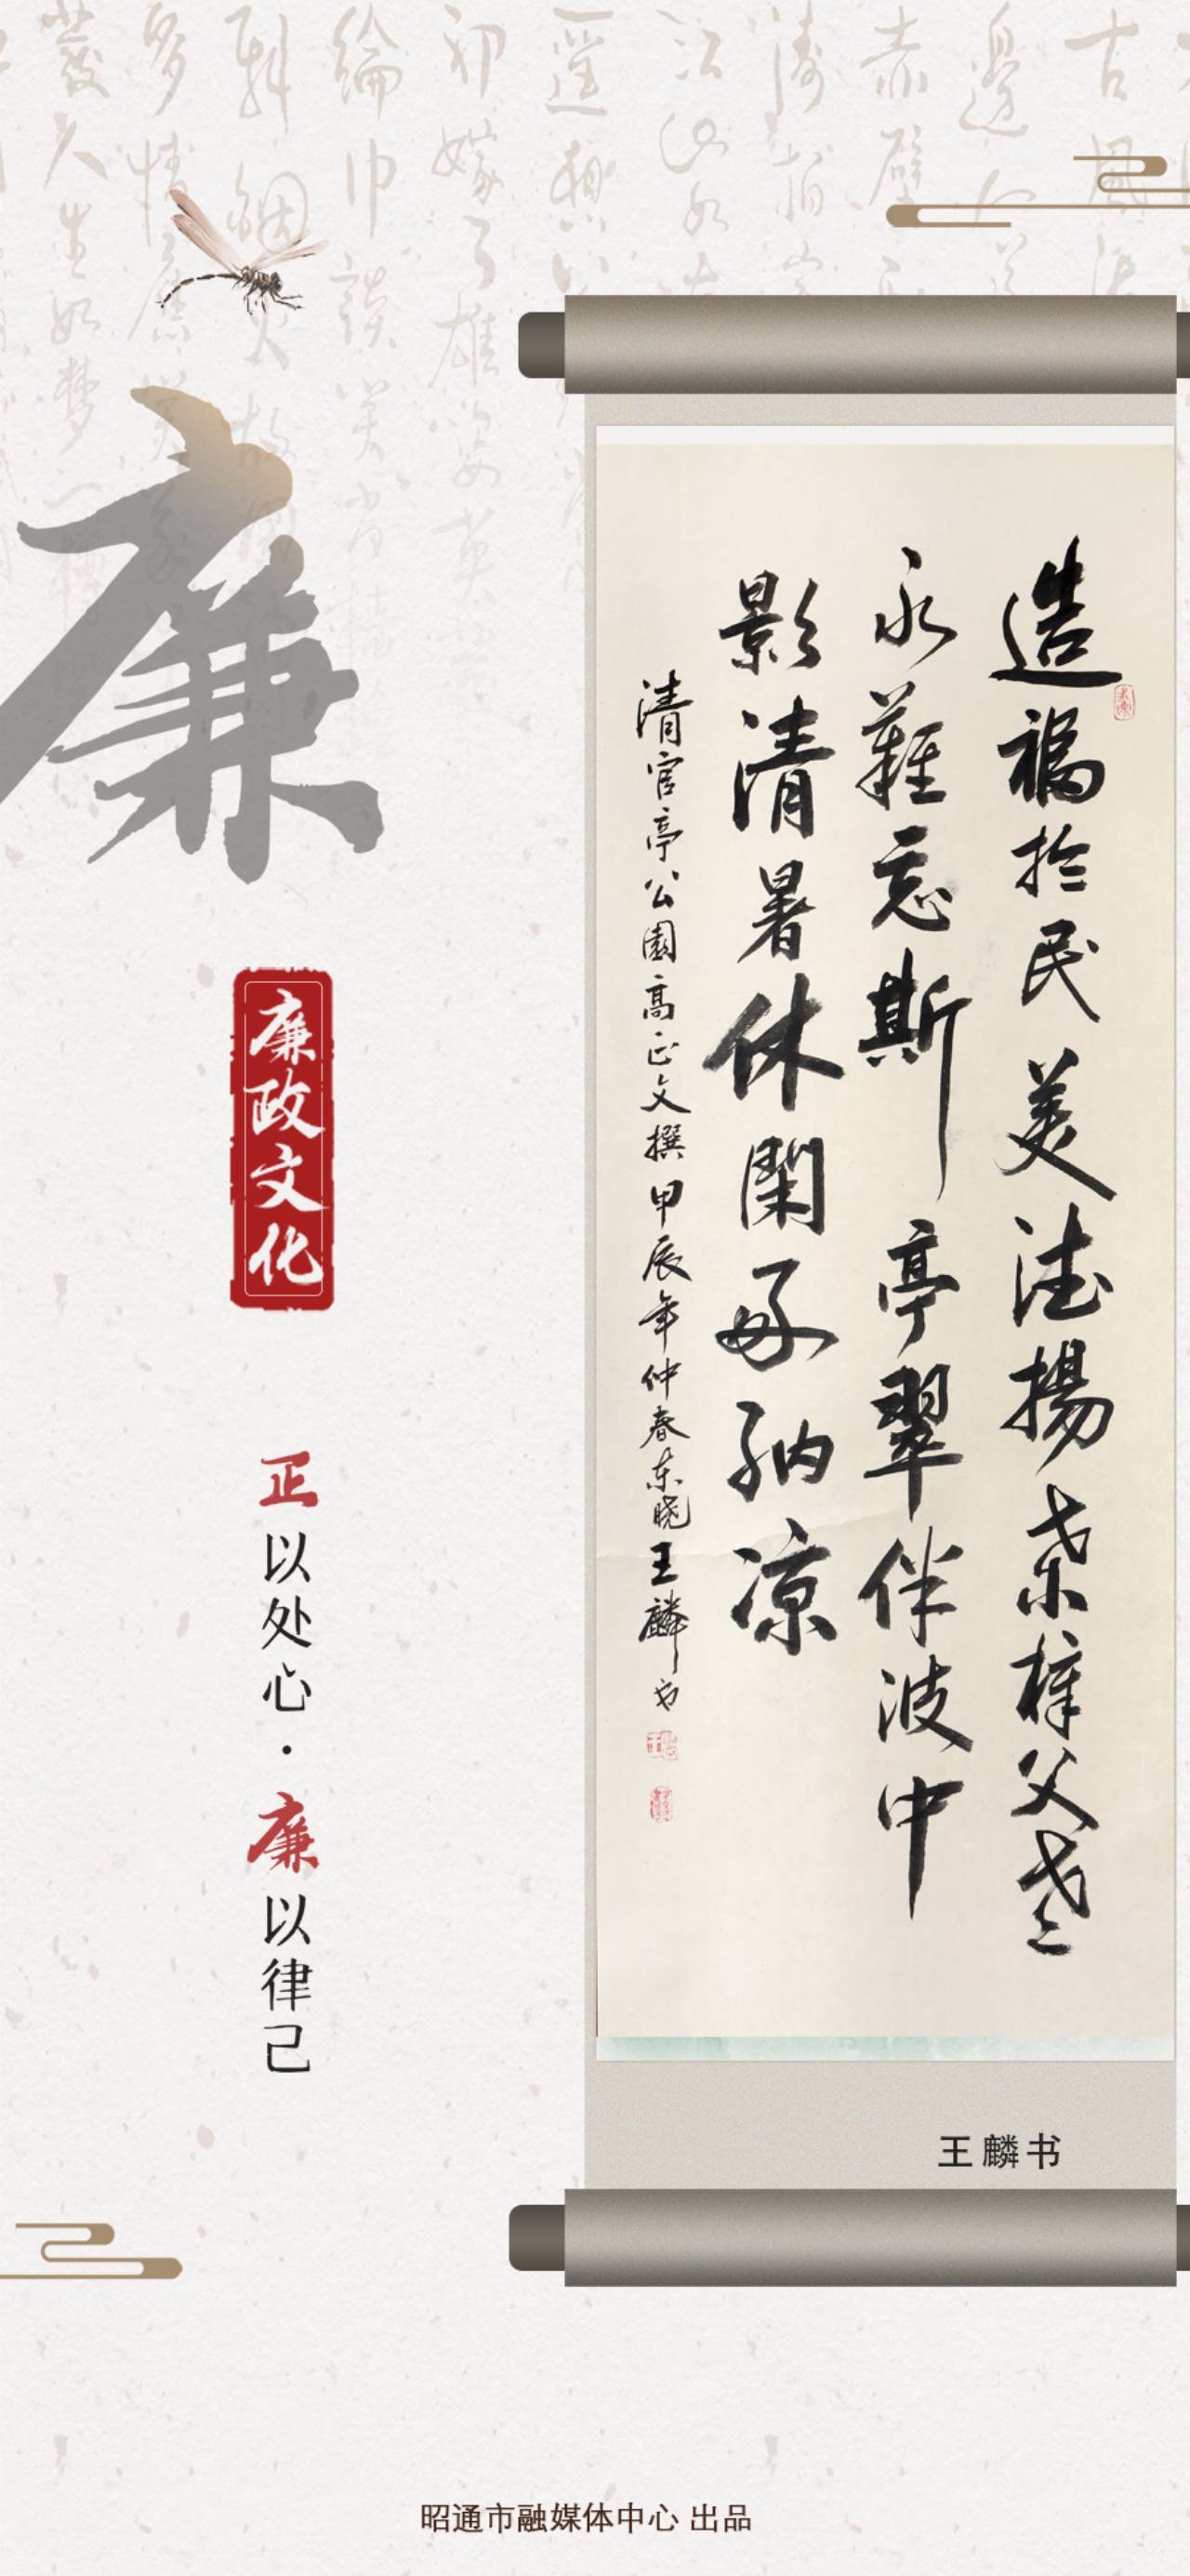 廉
廉政文化
正以处心·廉以律己
造福於民美德揚桑梓父老
永難忘斯亭翠伴波中
影清暑休閑好納凉
清官亭公園高正文撰甲辰年仲春东晓王麟书
王麟书
昭通市融媒体中心 出品